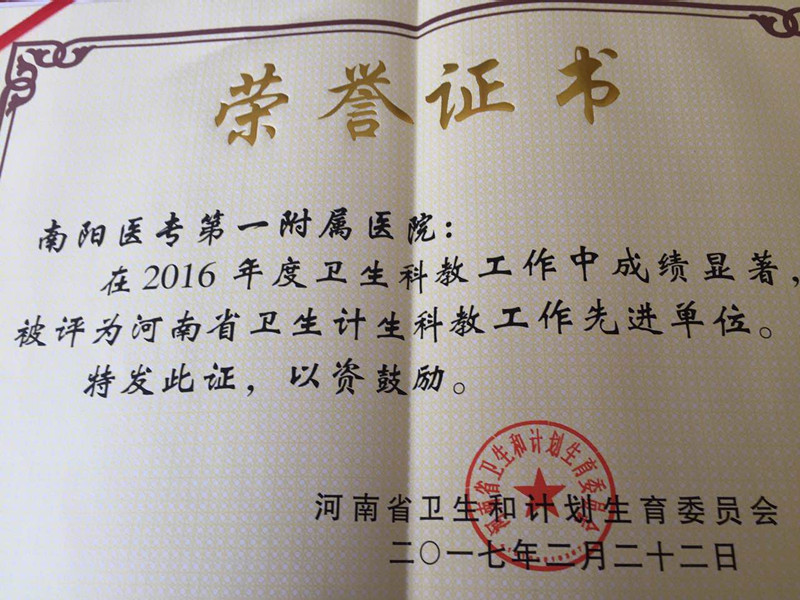 荣誉证书
南阳医专第一附属医院：
在2016年度卫生科教工作中成绩显著，
被评为河南省卫生计生科教工作先进单位。
特发此证，以资鼓励。
河南省卫生和计划生育委员会
河南省卫生和计划生育委员会
二〇一七年二月二十二日